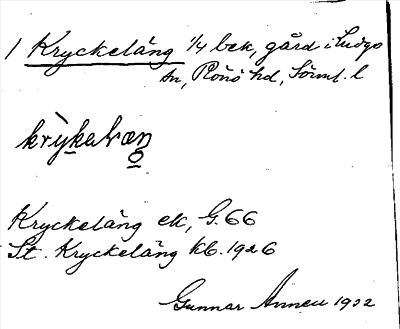 1 Kryckeläng 1/4 bek, gård i Ludgo
sn, Rönö hd, Sörml. l
Kryckeläng ek, G. 66
St. Kryckeläng kb. 1926
Gunnar 1932